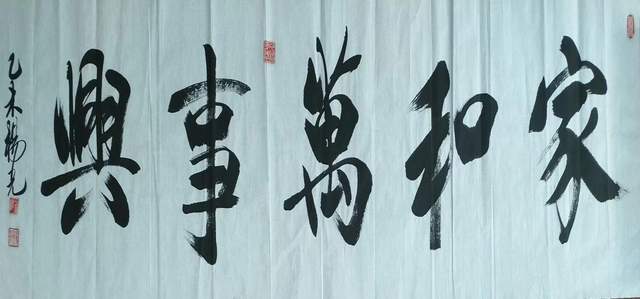 家和萬事興
乙未楊光